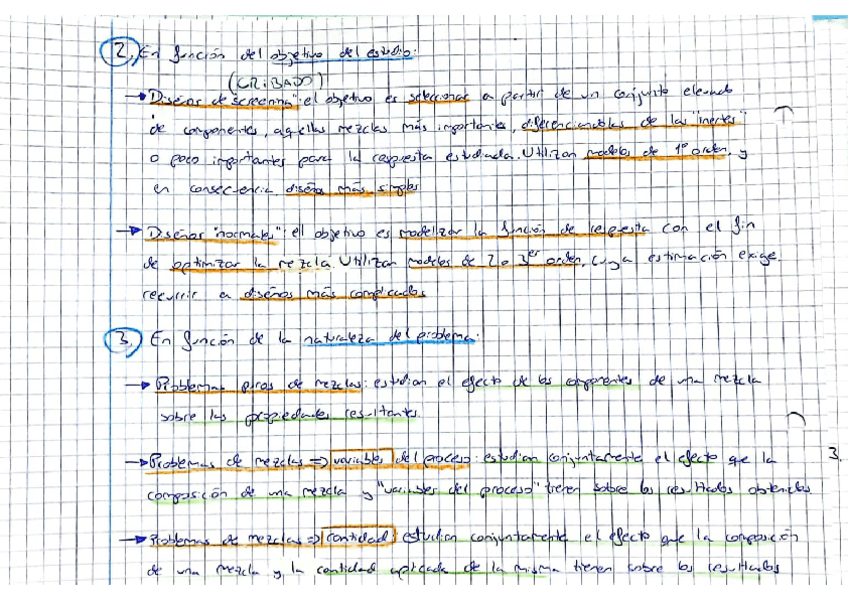 2. En función del objetivo del estudio:
(CRIBADO)
→ Diseños de "screening": el objetivo es seleccionar a partir de un conjunto elevado
de componentes, aquellas mezclas más importantes, diferenciandolas de las "inertes"
o poco importantes para la respuesta estudiada. Utilizan modelos de 1º orden, y
en consecuencia diseños más simples
→ Diseños "normales": el objetivo es modelizar la función de respuesta con el fin
de optimizar la mezcla. Utilizan modelos de 2 o 3er orden, cuya estimación exige
recurrir a diseños más complicados
3. En función de la naturaleza del problema:
→ Problemas puros de mezclas: estudian el efecto de los componentes de una mezcla
sobre las propiedades resultantes.
→ Problemas de mezclas ⇒ variables del proceso: estudian conjuntamente el efecto que la
composición de una mezcla y "variables del proceso" tienen sobre los resultados obtenidos
3.
→ Problemas de mezclas ⇒ cantidad: estudian conjuntamente el efecto que la composición
de una mezcla y la cantidad aplicada de la misma tienen sobre los resultados